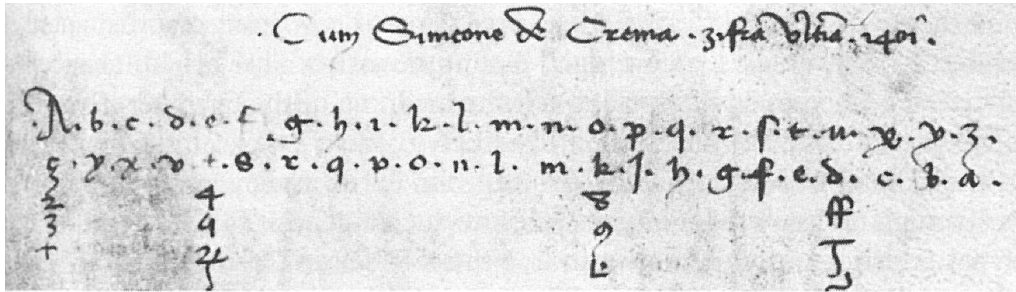 . Cum Simeone de Crema . zifra ultia . 1401 .
A . b . c . d . e . f . g . h . ı . k . l . m . n . o . p . q . r . ſ . t . u . x . y . z .
z . y . x . v . + . s . r . q . p . o . n . l . m . k . J . h . g . f . e . d . c . b . a .
2 4 8 ff
3 4 9
+